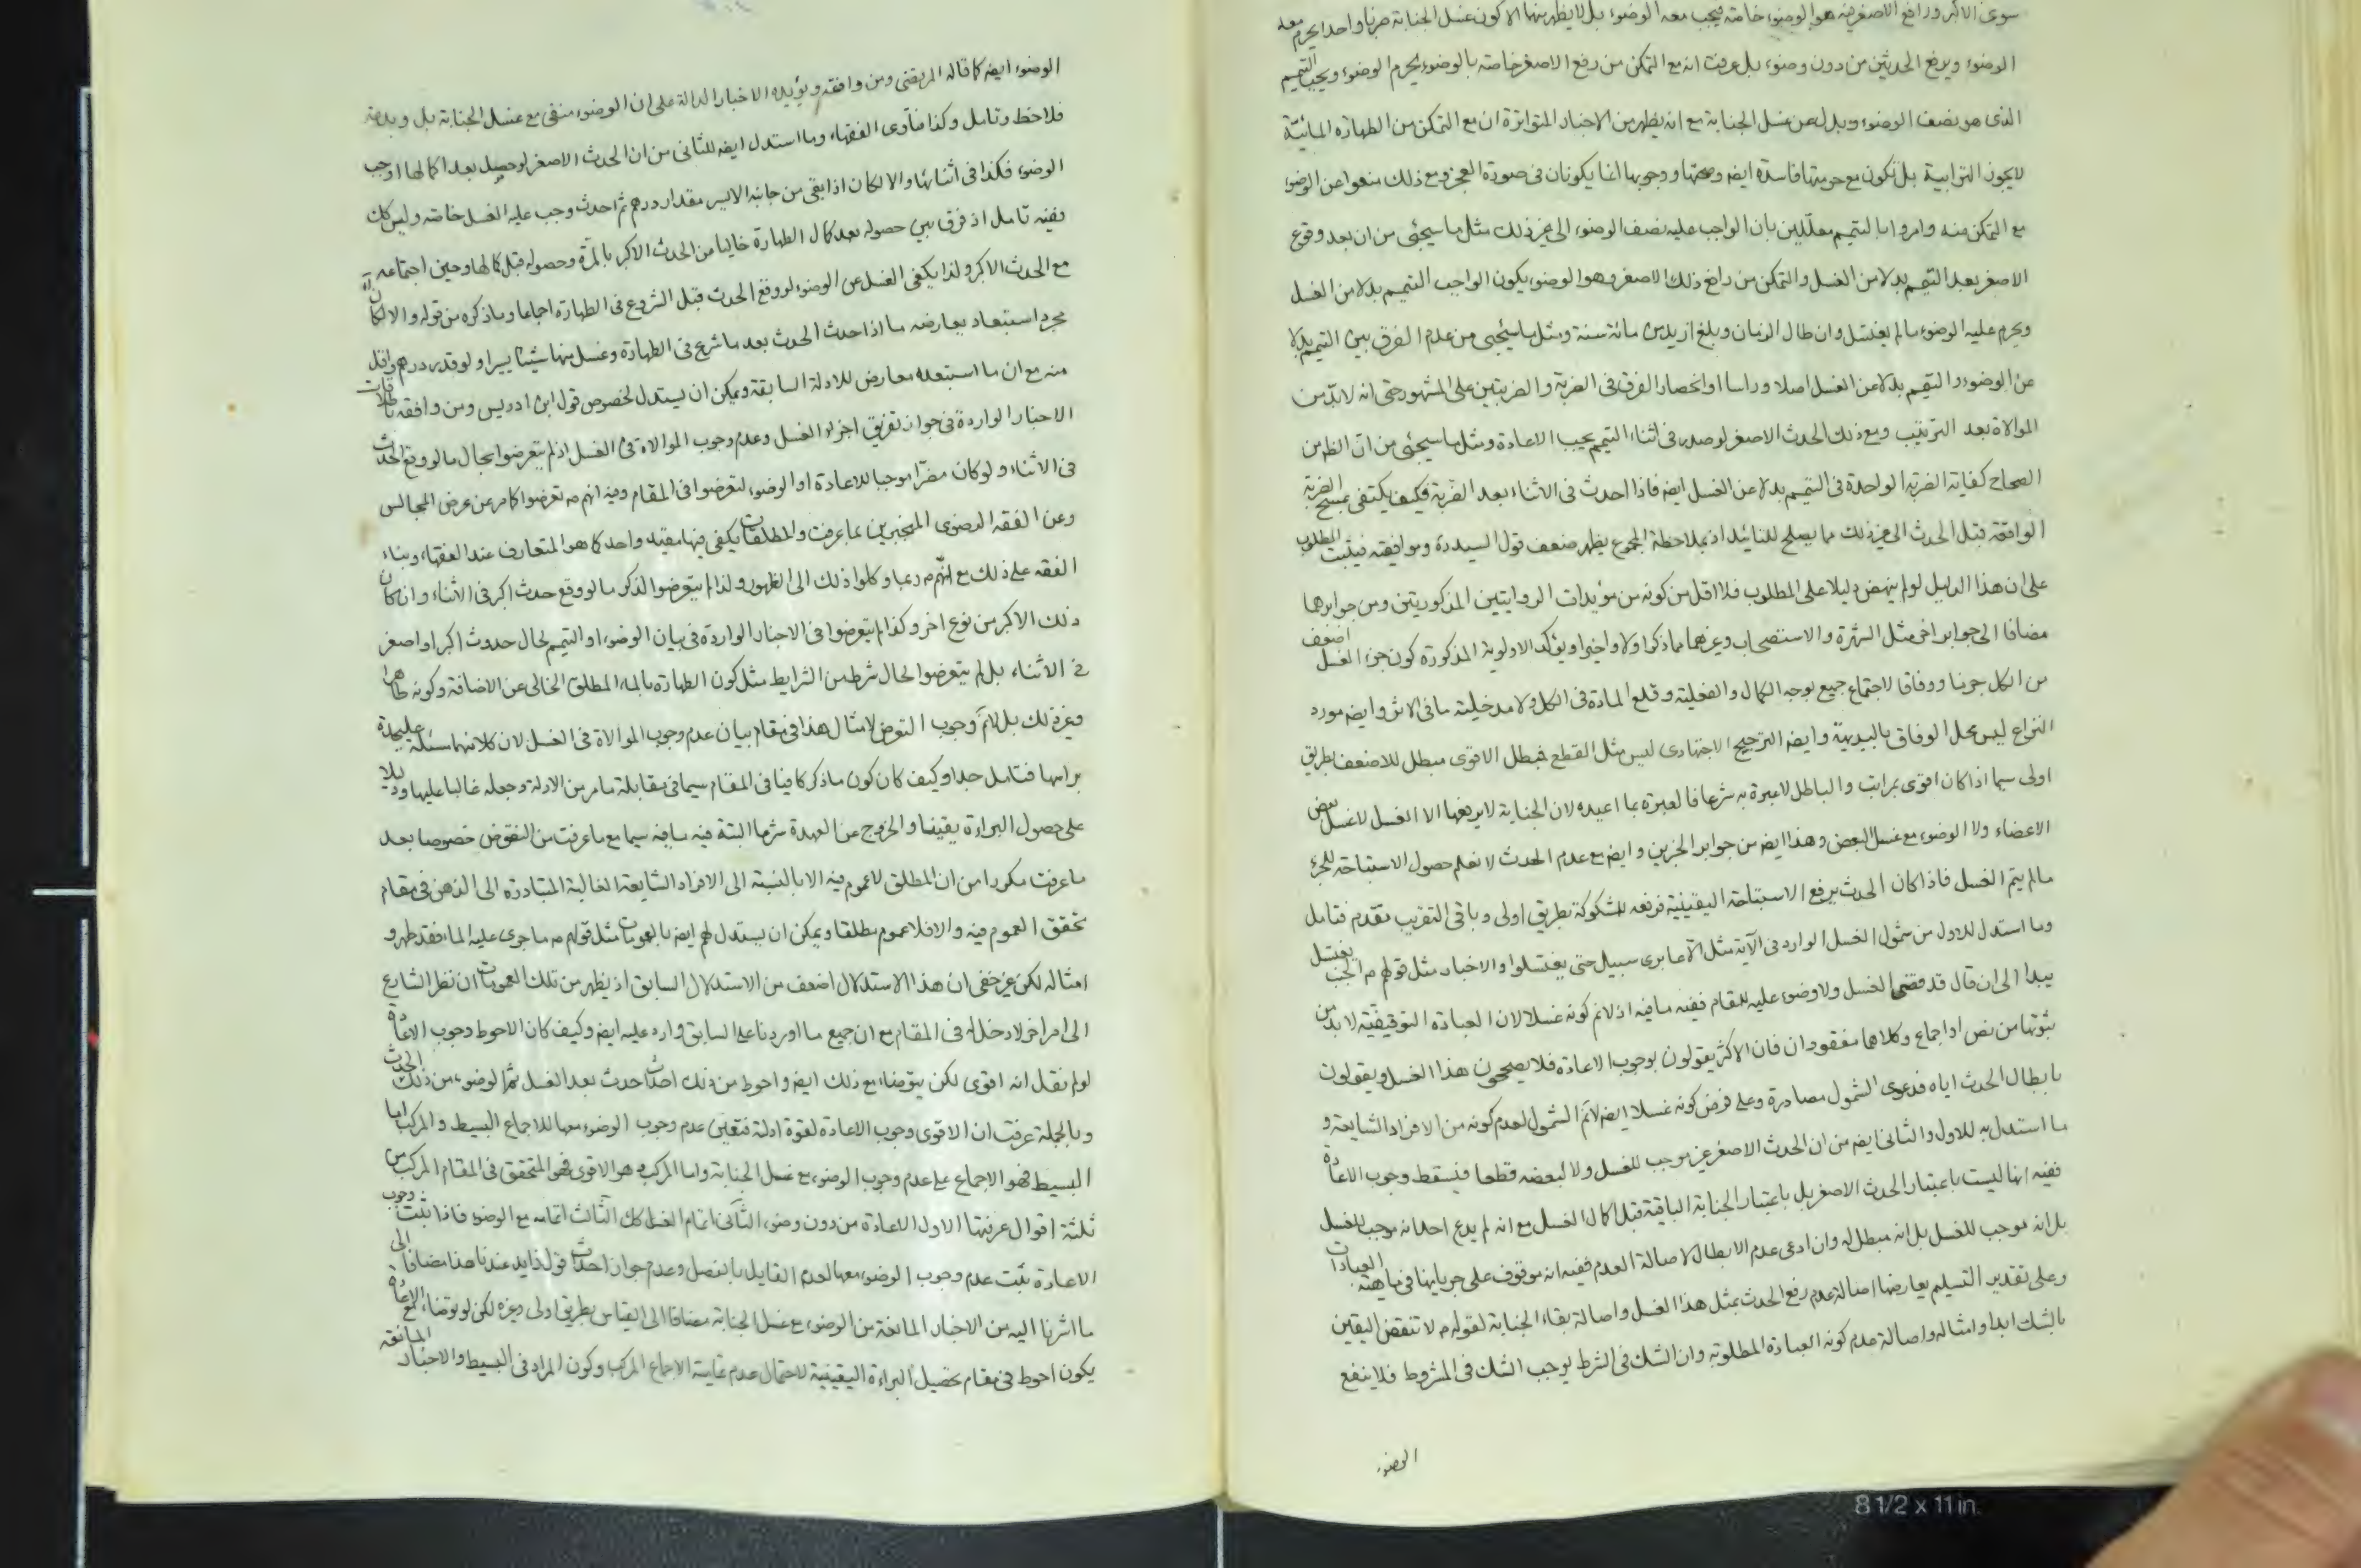 سوى الاكبر ورافع الاصغر فيه هو الوضوء خاصة فيجب معه الوضوء بل لا يظهر منها الا كون غسل الجنابة حزنا واحدا يحرم معه
الوضوء ويرفع الحدثين من دون وضوء بل عرفت انه مع التمكن من رفع الاصغر خاصة بالوضوء يحرم الوضوء ويجب التيمم
الذى هو نصف الوضوء وبدل عن غسل الجنابة مع انه يظهر من الاخبار المتواترة ان مع التمكن من الطهارة المائية
لا يجوز الترابية بل تكون مع حرمتها فاسدة ايضه وصحتها ووجوبها انما يكونان فى صورة العجز ومع ذلك منعوا عن الوضوء
مع التمكن منه وامروا بالتيمم معللين بان الواجب عليه نصف الوضوء الى غير ذلك مثل ما سيجئ من ان بعد وقوع
الاصغر بعد التيمم بدلا من الغسل والتمكن من رافع ذلك الاصغر وهو الوضوء يكون الواجب التيمم بدلا من الغسل
ويحرم عليه الوضوء ما لم يغتسل وان طال الزمان وبلغ ازيد من مائة سنة ومثل ما سيجئ من عدم الفرق بين التيمم بدلا
عن الوضوء والتيمم بدلا عن الغسل اصلا وراسا او انحصار الفرق فى الضربة والضربتين على المشهور حتى انه لا بد من
الموالاة بعد الترتيب ومع ذلك الحدث الاصغر لو صدر فى اثناء التيمم يجب الاعادة ومثل ما سيجئ من ان الظ من
الصحاح كفاية الضربة الواحدة فى التيمم بدلا عن الغسل ايضه فاذا احدث فى الاثناء بعد الضربة فكيف يكتفى بمسح الضربة
الواقعة قبل الحدث الى غير ذلك مما يصلح للتائيد اذ بملاحظة المجموع يظهر ضعف قول السيد ره وموافقيه فيثبت المطلوب
على ان هذا الدليل لو لم ينهض دليلا على المطلوب فلا اقل من كونه من مؤيدات الروايتين المذكورتين ومن جوابرها
مضافا الى جوابر اخر مثل الشهرة والاستصحاب وغيرهما مما ذكر اولا واخيرا ويؤكد الاولوية المذكورة كون جزء الغسل اضعف
من الكل جزنا ووفاقا لاجتماع جميع بوجه الكمال والفعلية وقلع المادة فى الكل ولا مدخلية ما فى الاثر وايضه مورد
النزاع ليس محل الوفاق بالبديهة وايضه الترجيح الاجتهادى ليس مثل القطع فبطل الاقوى مبطل للاضعف بطريق
اولى سيما اذا كان اقوى بمراتب والباطل لا عبرة به شرعا فالعبرة بما اعيد لان الجنابة لا يرفعها الا الغسل لا غسل بعض
الاعضاء ولا الوضوء مع غسل البعض وهذا ايضه من جوابر الخبرين وايضه مع عدم الحدث لا نعلم حصول الاستباحة للجزء
ما لم يتم الغسل فاذا كان الحدث يرفع الاستباحة اليقينية فرفعه للمشكوكة بطريق اولى وباقى التقريب تقدم فتامل
وما استدل للاول من شمول الغسل الوارد فى الآية مثل الا عابرى سبيل حتى يغتسلوا والاخبار مثل قولهم ع الجنب يغتسل
يبدا الى ان قال قد قضى الغسل ولا وضوء عليه للمقام ففيه ما فيه اذ لا نم كونه غسلا لان العبادة التوقيفية لا بد من
ثبوتها من نص او اجماع وكلاهما مفقودان فان الاكثر يقولون بوجوب الاعادة فلا يصححون هذا الغسل ويقولون
بابطال الحدث اياه فدعوى الشمول مصادرة وعلى فرض كونه غسلا ايضه لا نم الشمول لعدم كونه من الافراد الشايعة و
ما استدل به للاول والثانى ايضه من ان الحدث الاصغر غير موجب للغسل ولا لبعضه قطعا فيسقط وجوب الاعادة
ففيه انها ليست باعتبار الحدث الاصغر بل باعتبار الجنابة الباقية قبل اكمال الغسل مع انه لم يدع احد انه موجب للغسل
بل انه موجب للغسل بل انه مبطل له وان ادعى عدم الابطال لاصالة العدم ففيه انه موقوف على جريانها فى ماهية العبادات
وعلى تقدير التسليم يعارضها اصالة عدم رفع الحدث بمثل هذا الغسل واصالة بقاء الجنابة لقوله ع لا تنقض اليقين
بالشك ابدا وامثاله واصالة عدم كونه العبادة المطلوبة وان الشك فى الشرط يوجب الشك فى المشروط فلا ينفع
الوضوء
الوضوء ايضه كما قاله المرتضى ومن وافقه ويؤيده الاخبار الدالة على ان الوضوء منفى مع غسل الجنابة بل وبدعة
فلاحظ وتامل وكذا فتاوى الفقهاء وما استدل ايضه للثانى من ان الحدث الاصغر لو حصل بعد اكمالها اوجب
الوضوء فكذا فى اثنائها والا لكان اذا بقى من جانبه الايسر مقدار درهم ثم احدث وجب عليه الغسل خاصة وليس كك
ففيه تامل اذ فرق بين حصوله بعد كمال الطهارة خاليا من الحدث الاكبر بالمرة وحصوله قبل كمالها وحين اجتماعه
مع الحدث الاكبر ولذا يكفى الغسل عن الوضوء لو وقع الحدث قبل الشروع فى الطهارة اجماعا وما ذكره من قوله والا لكان آه
مجرد استبعاد يعارضه ما اذا احدث الحدث بعد ما شرع فى الطهارة وغسل منها شيئا يسيرا ولو قدر درهم واقل
منه مع ان ما استبعده معارض للادلة السابقة ويمكن ان يستدل لخصوص قول ابن ادريس ومن وافقه باطلاقات
الاخبار الواردة فى جواز تفريق اجزاء الغسل وعدم وجوب الموالاة فى الغسل اذ لم يتعرضوا بحال ما لو وقع الحدث
فى الاثناء ولو كان مضرا موجبا للاعادة او الوضوء لتعرضوا فى المقام وفيه انهم ع تعرضوا كما مر عن عرض المجالس
وعن الفقه الرضوى المنجبرين بما عرفت والمطلقات يكفى فيها مقيد واحد كما هو المتعارف عند الفقهاء وبناء
الفقه على ذلك مع انهم ع ربما وكلوا ذلك الى الظهور ولذا لم يتعرضوا لذكر ما لو وقع حدث اكبر فى الاثناء وان كان
ذلك الاكبر من نوع اخر وكذا لم يتعرضوا فى الاخبار الواردة فى بيان الوضوء او التيمم لحال حدوث اكبر او اصغر
فى الاثناء بل لم يتعرضوا لحال شرط من الشرايط مثل كون الطهارة بالماء المطلق الخالى عن الاضافة وكونه طاهرا
وغير ذلك بل لا نم وجوب التعرض لامثال هذا فى مقام بيان عدم وجوب الموالاة فى الغسل لان كلا منهما مسئلة عليحدة
براسها فتامل جدا وكيف كان كون ما ذكر كافيا فى المقام سيما فى مقابلة ما مر من الادلة وجعله غالبا عليها ودليلا
على حصول البراءة يقينا والخروج عن العهدة شرعا البتة فيه ما فيه سيما مع ما عرفت من النقوض خصوصا بعد
ما عرفت مكررا من ان المطلق لا عموم فيه الا بالنسبة الى الافراد الشايعة الغالبة المتبادرة الى الذهن فى مقام
تحقق العموم فيه والا فلا عموم مطلقا ويمكن ان يستدل لهم ايضه بالعمومات مثل قولهم ع ما جرى عليه الماء فقد طهر و
امثاله لكن غير خفى ان هذا الاستدلال اضعف من الاستدلال السابق اذ يظهر من تلك العمومات ان نظر الشارع
الى امر اخر لا دخل له فى المقام مع ان جميع ما اوردنا على السابق وارد عليه ايضه وكيف كان الاحوط وجوب الاعادة
لو لم نقل انه اقوى لكن يتوضاء مع ذلك ايضه واحوط من ذلك احداث حدث بعد الغسل ثم الوضوء من ذلك الحدث
وبالجملة عرفت ان الاقوى وجوب الاعادة لقوة ادلة فتعين عدم وجوب الوضوء معها للاجماع البسيط والمركب اما
البسيط فهو الاجماع على عدم وجوب الوضوء مع غسل الجنابة واما المركب وهو الاقوى فهو المتحقق فى المقام المركب من
ثلثة اقوال عرفتها الاول الاعادة من دون وضوء الثانى اتمام الغسل كك الثالث اتمامه مع الوضوء فاذا ثبت وجوب
الاعادة ثبت عدم وجوب الوضوء معها لعدم القايل بالفصل وعدم جواز احداث قول زايد عندنا هذا مضافا الى
ما اشرنا اليه من الاخبار المانعة من الوضوء مع غسل الجنابة مضافا الى القياس بطريق اولى وغيره لكن لو توضاء مع الاعادة
يكون احوط فى مقام تحصيل البراءة اليقينية لاحتمال عدم تمامية الاجماع المركب وكون المراد فى البسيط والاخبار المانعة